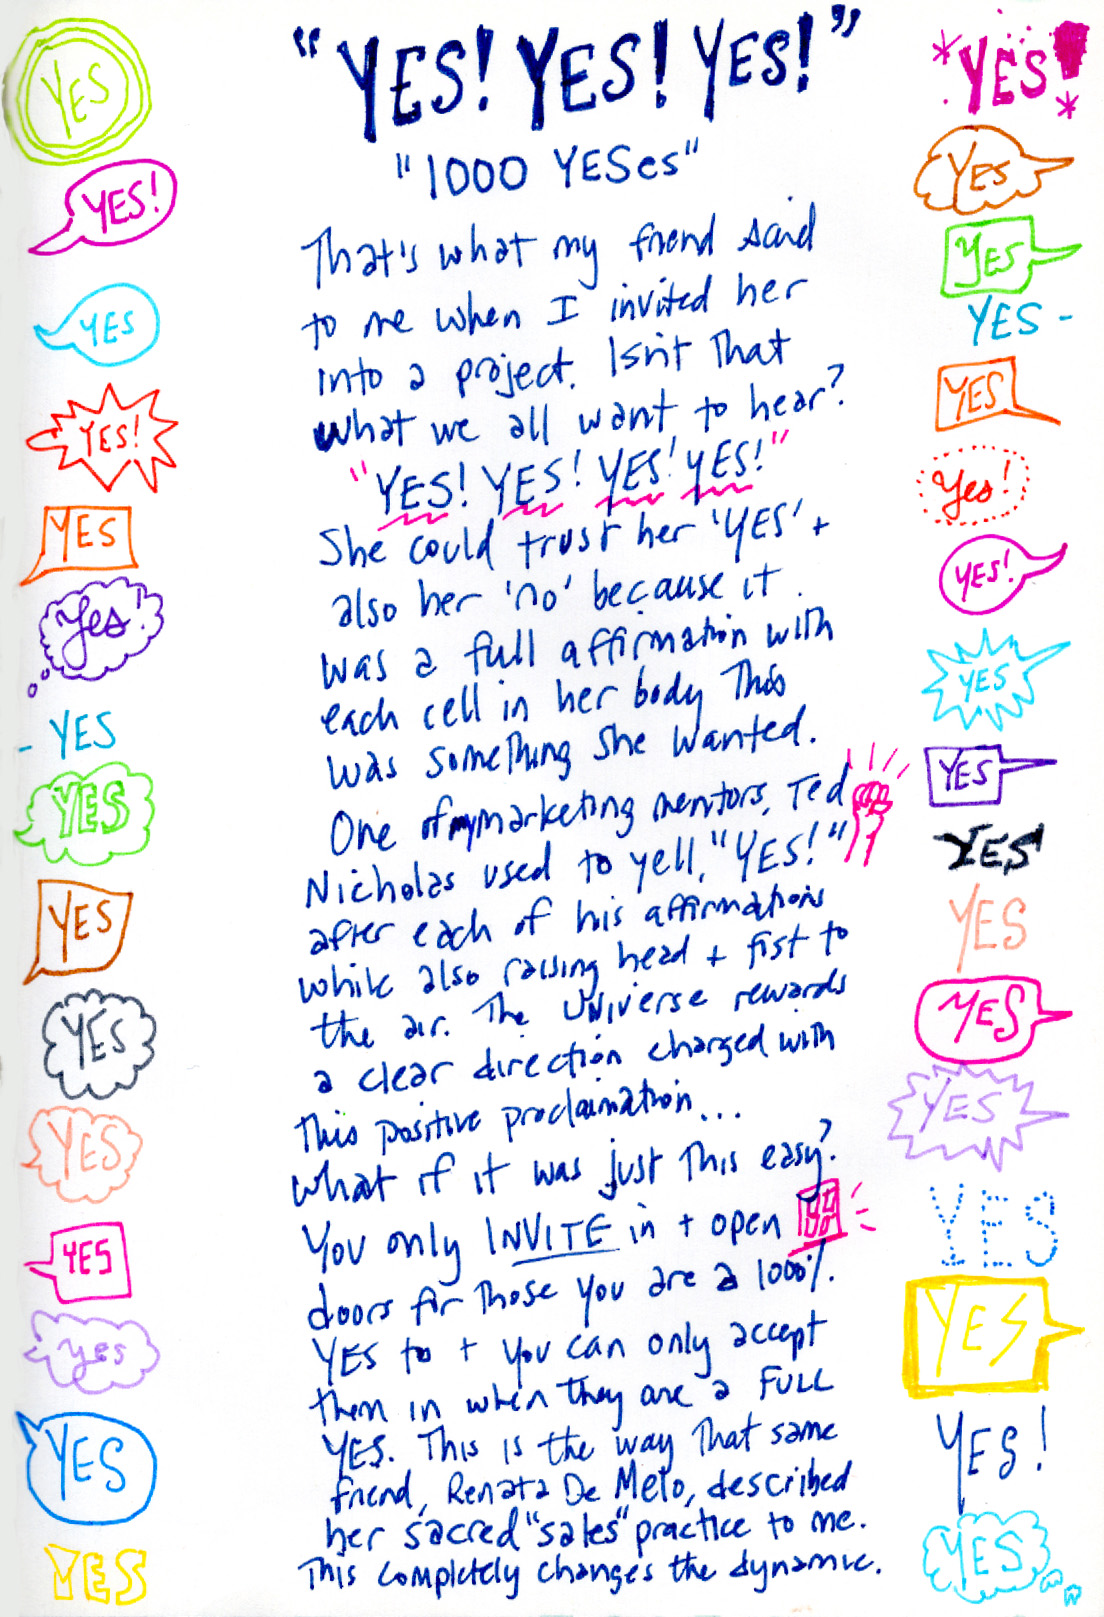 "YES! YES! YES!"
"1000 YESes"
That's what my friend said
to me when I invited her
into a project. Isn't That
what we all want to hear?
"YES! YES! YES! YES!"
She could trust her 'YES' +
also her 'no' because it
was a full affirmation with
each cell in her body This
was something she wanted.
One of my marketing mentors, Ted
Nicholas used to yell, "YES!"
after each of his affirmations
while also raising head + fist to
the air. The UNiverse rewards
a clear direction charged with
This positive proclaimation...
What if it was just This easy?
You only INVITE in + open
doors for Those you are a 1000%
YES to + you can only accept
them in when they are a FULL
YES. This is the way That same
friend, Renata De Melo, described
her sacred "sales" practice to me.
This completely changes the dynamic.
YES
YES!
YES
YES!
YES
Yes!
- YES
YES
YES
YES
YES
YES
Yes
YES
YES
YES!
YES
YES
YES -
YES
Yes!
YES!
YES
YES
YES
YES
YES
YES
YES
YES
YES!
YES